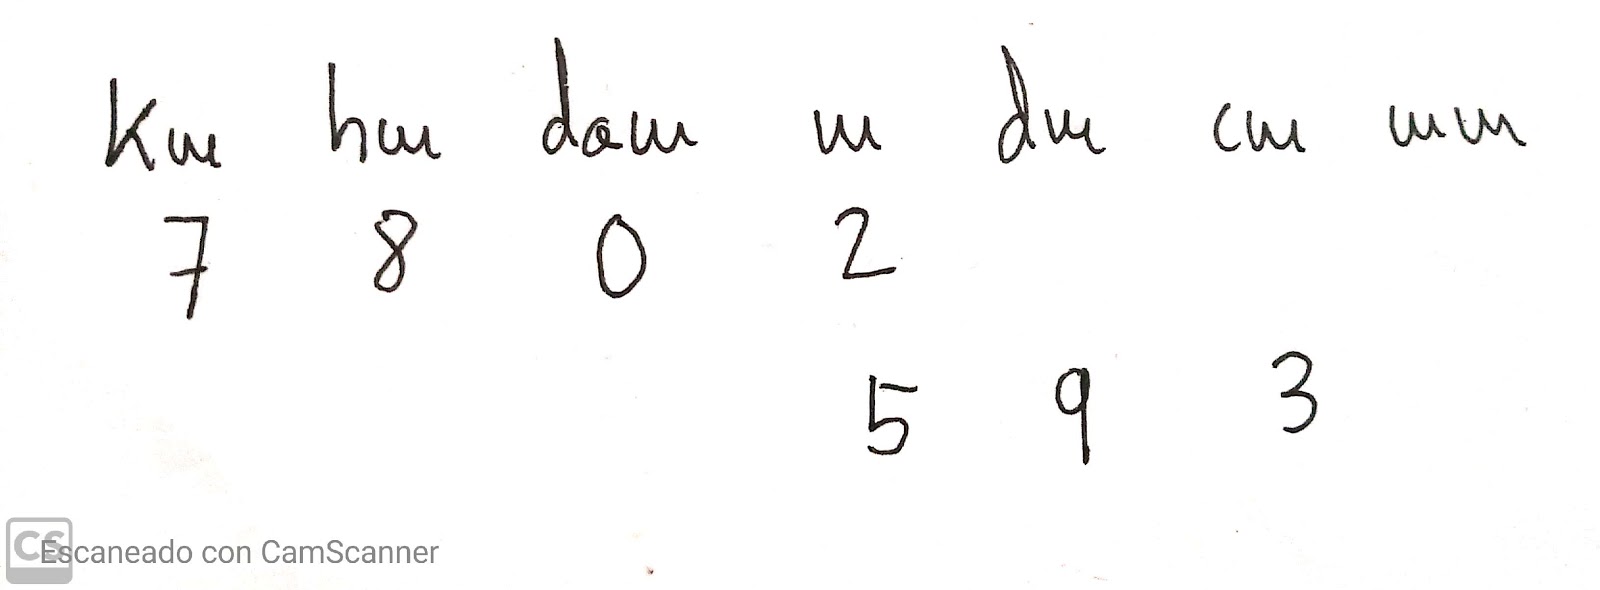 Km hm dam m dm cm mm
7 8 0 2
5 9 3
CS Escaneado con CamScanner